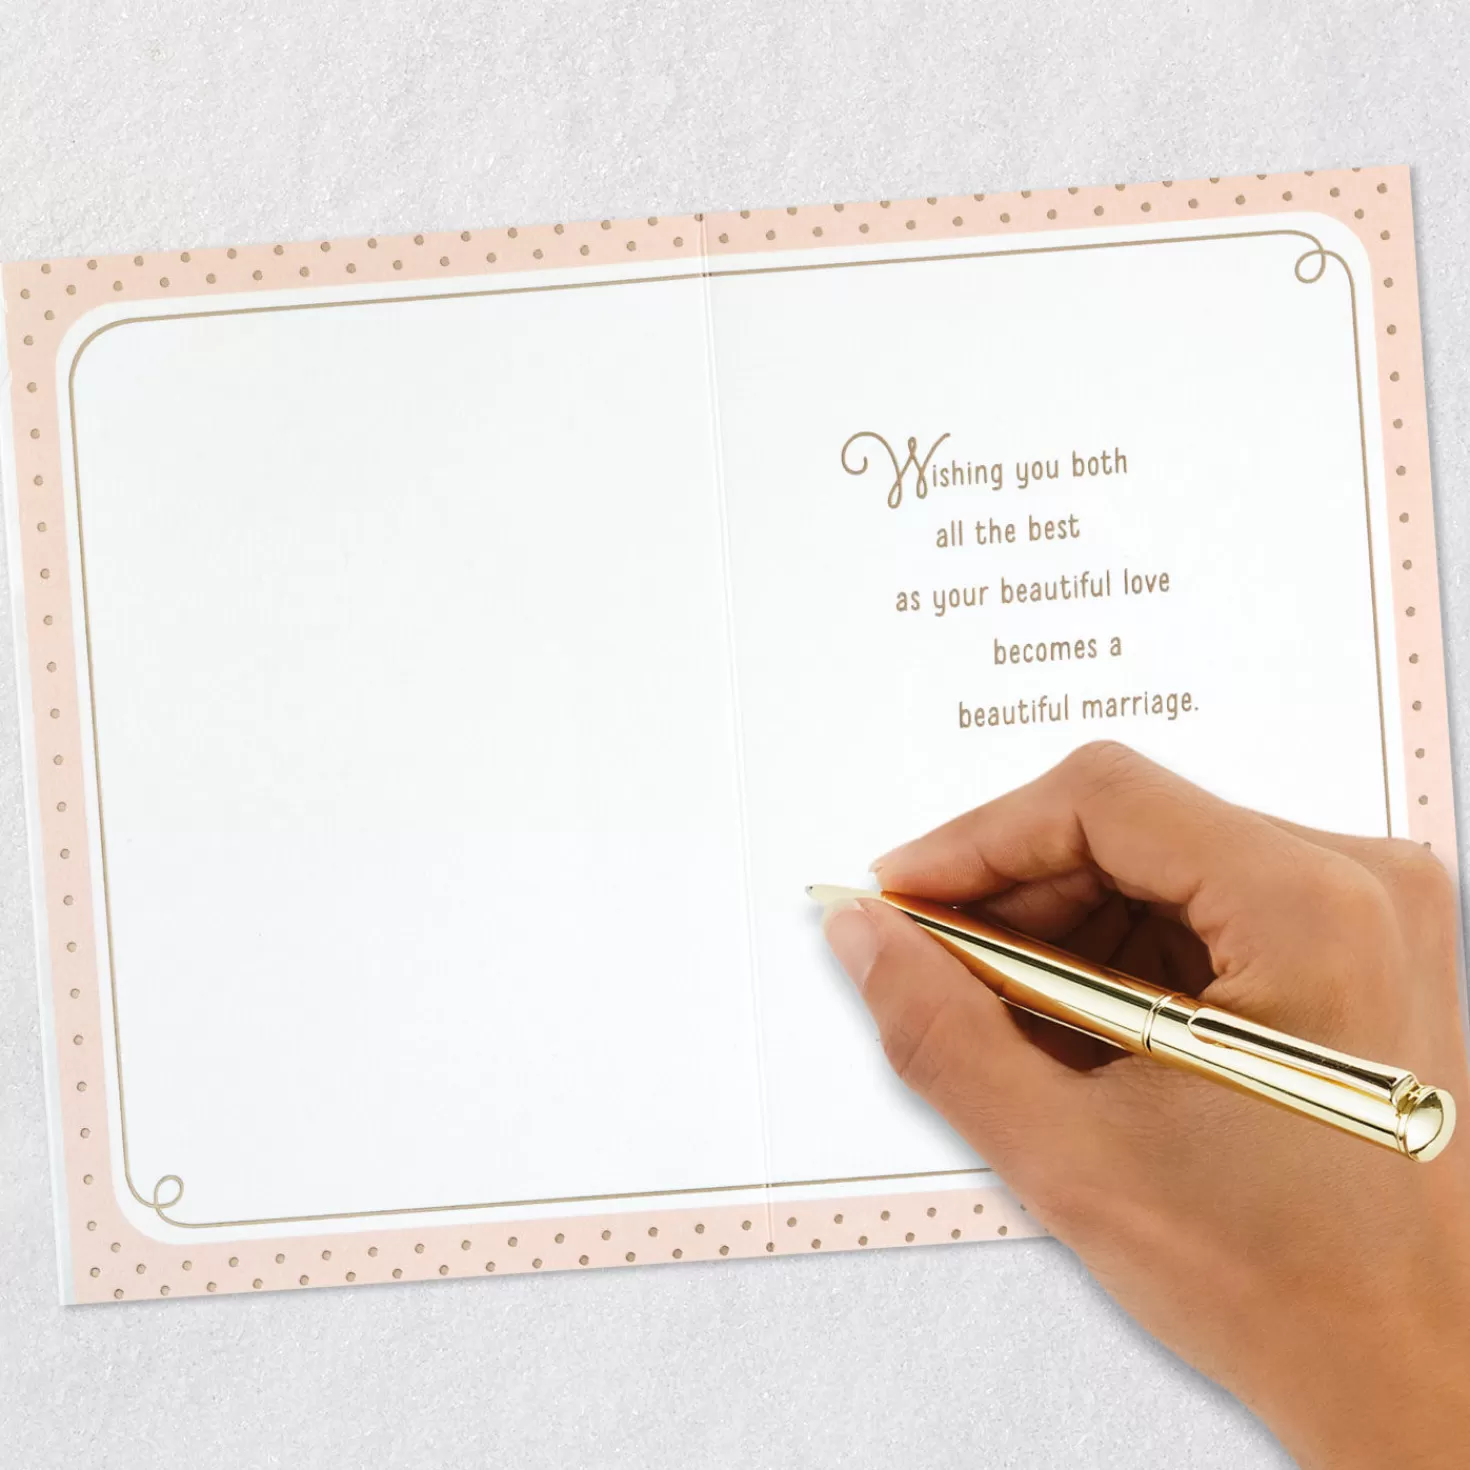 Wishing you both
all the best
as your beautiful love
becomes a
beautiful marriage.